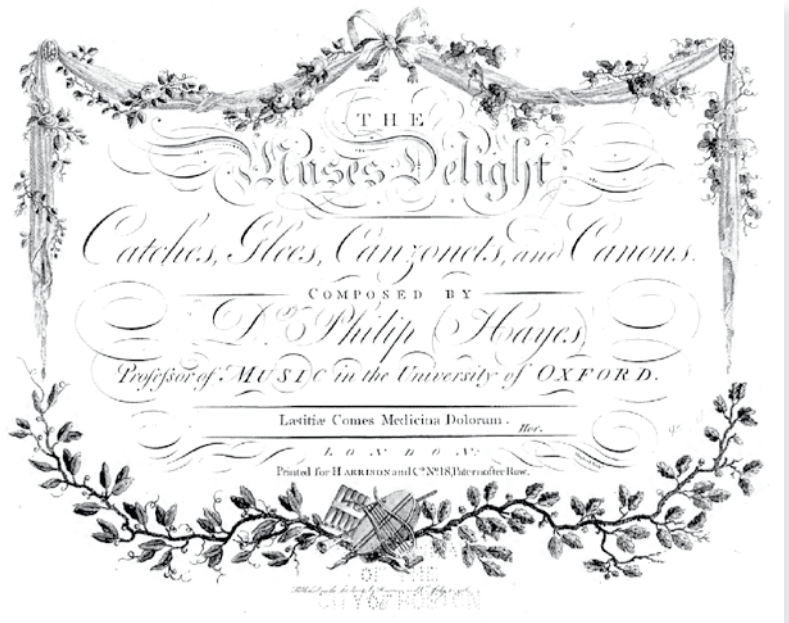 THE
Muses Delight
Catches, Glees, Canzonets, and Canons.
COMPOSED BY
Dr. Philip Hayes,
Profeſsor of MUSIC in the University of OXFORD.
Lætitiæ Comes Medicina Dolorum.
Hor.
LONDON:
Printed for HARRISON and Co. No. 18, Paternoſter Row.
OF THE
CITY OF BOSTON